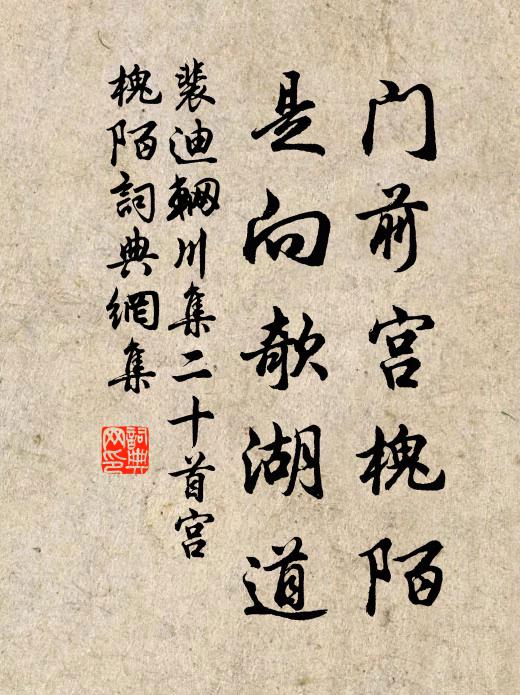 门前宫槐陌
是向欹湖道
裴迪辋川集二十首宫
槐陌詞典網集
詞典
网印